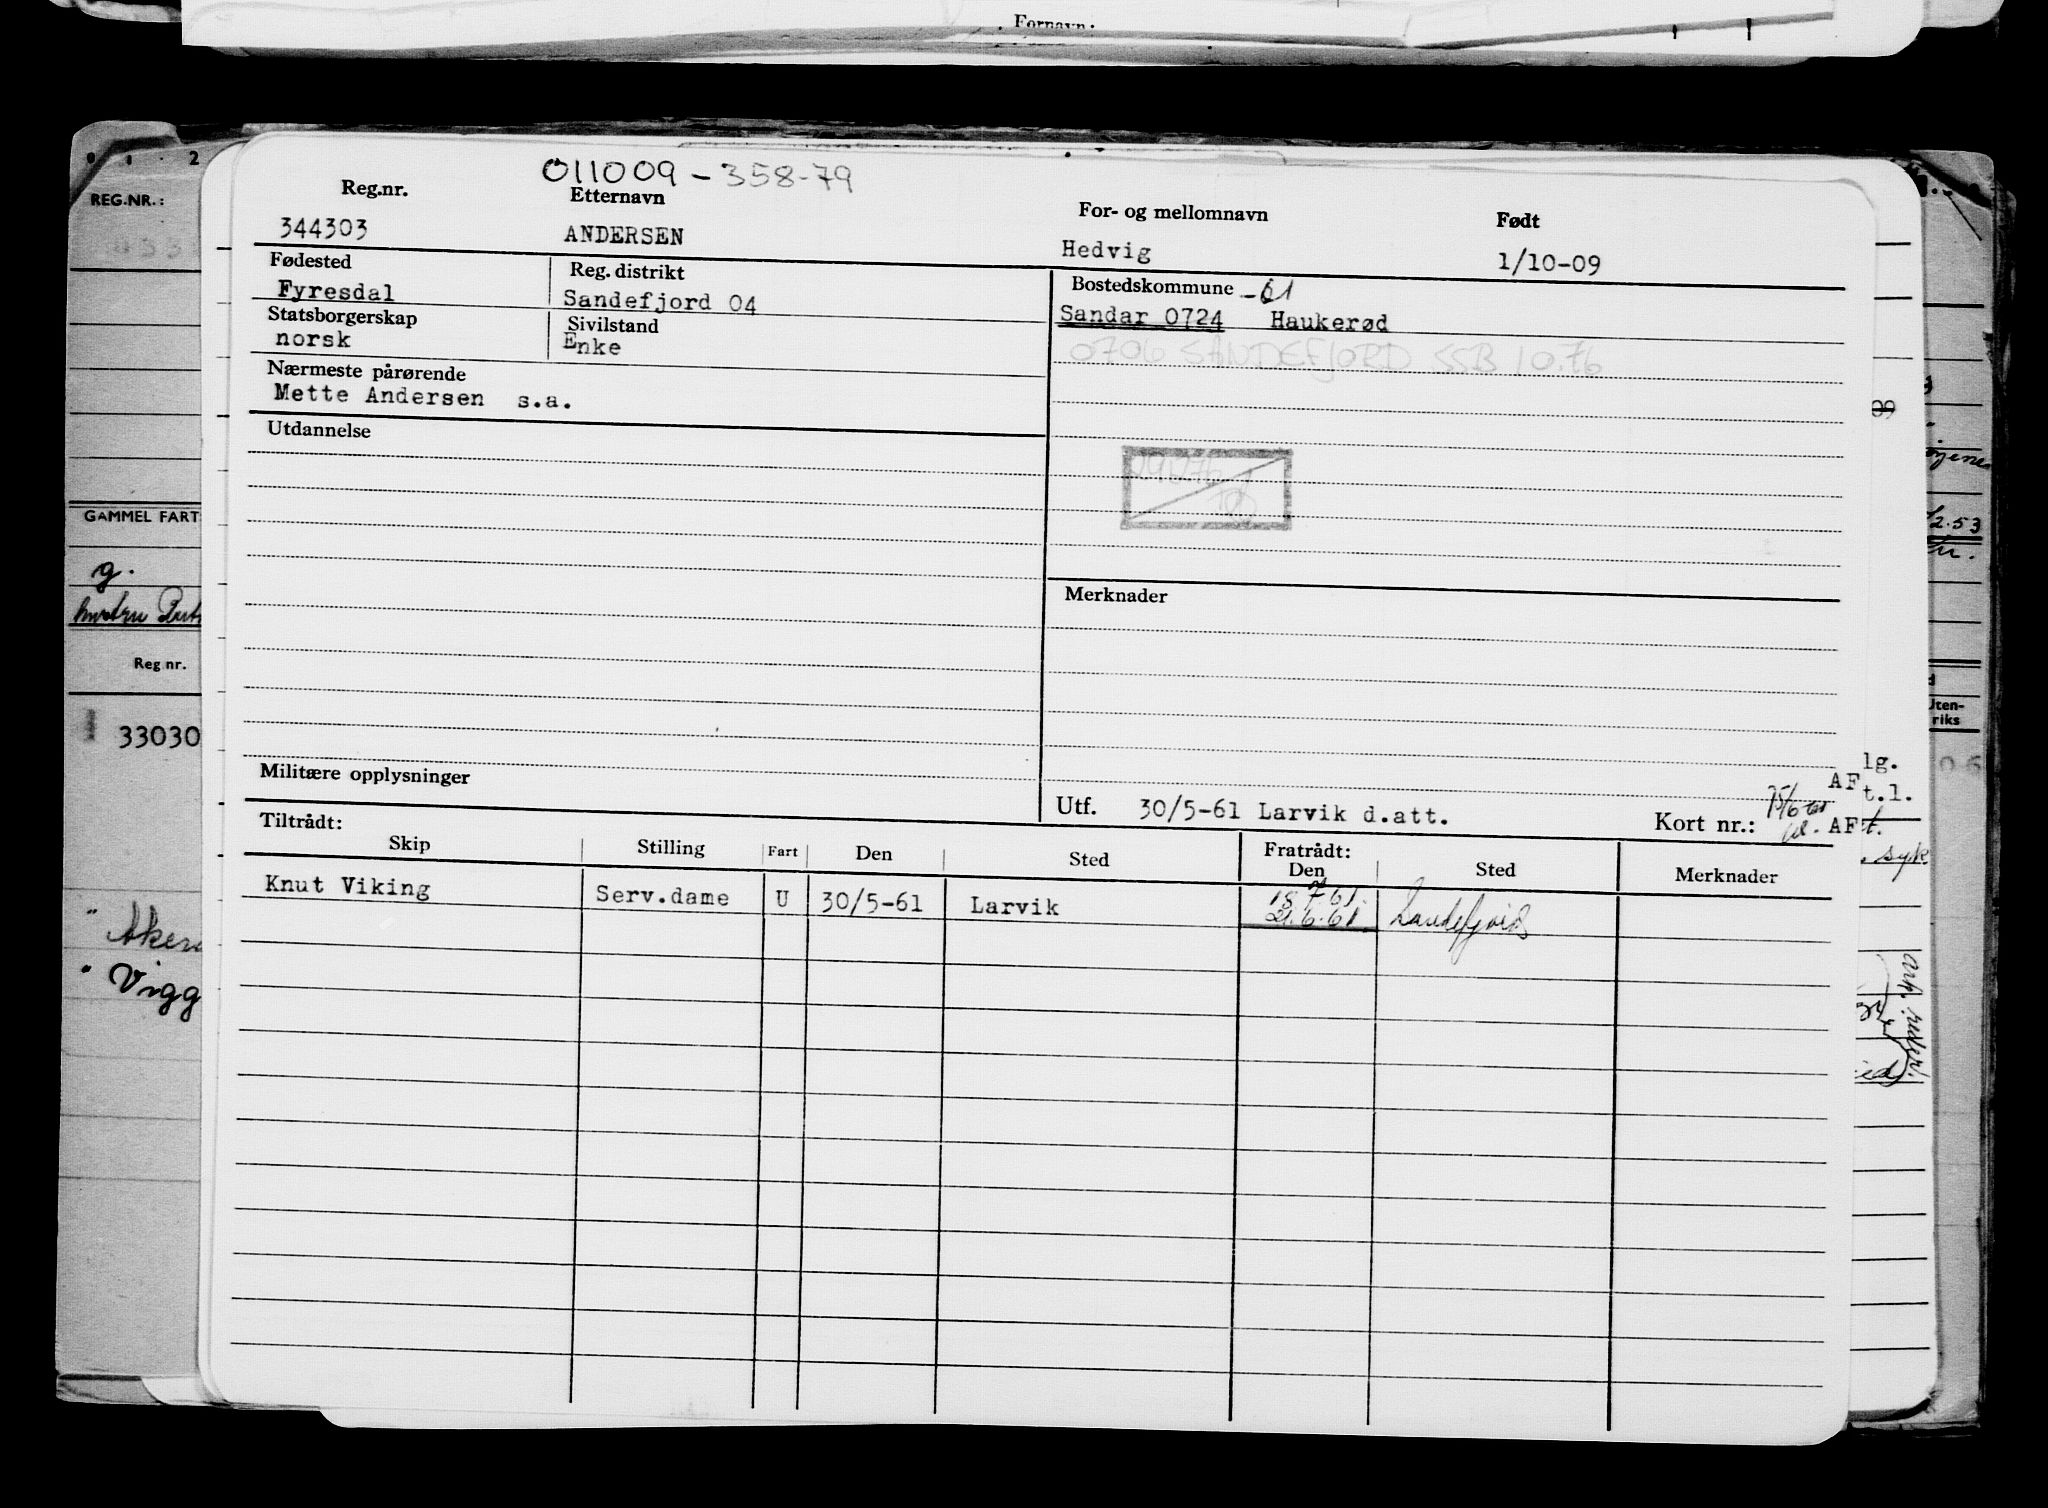 Fornavn:
REG.NR.:
011009-358-79
Reg.nr. Etternavn For- og mellomnavn Født
344303 ANDERSEN Hedvig 1/10-09
Fødested Reg. distrikt Bostedskommune -61
Fyresdal Sandefjord 04 Sandar 0724 Haukerød
Statsborgerskap Sivilstand
norsk Enke
0706 SANDEFJORD SSB 10.76
Nærmeste pårørende
Mette Andersen s.a.
Utdannelse
GAMMEL FART
g.
Merknader
Reg nr.
33030
Militære opplysninger
Utf. 30/5-61 Larvik d.att. Kort nr.:
lg.
AF t.l.
AF t.
Tiltrådt: Fratrådt:
Skip Stilling Fart Den Sted Den Sted Merknader
Knut Viking Serv.dame U 30/5-61 Larvik 18.7.61. Sandefjord
21.6.61
Vigg
2.53
Uten-
riks
06
syk